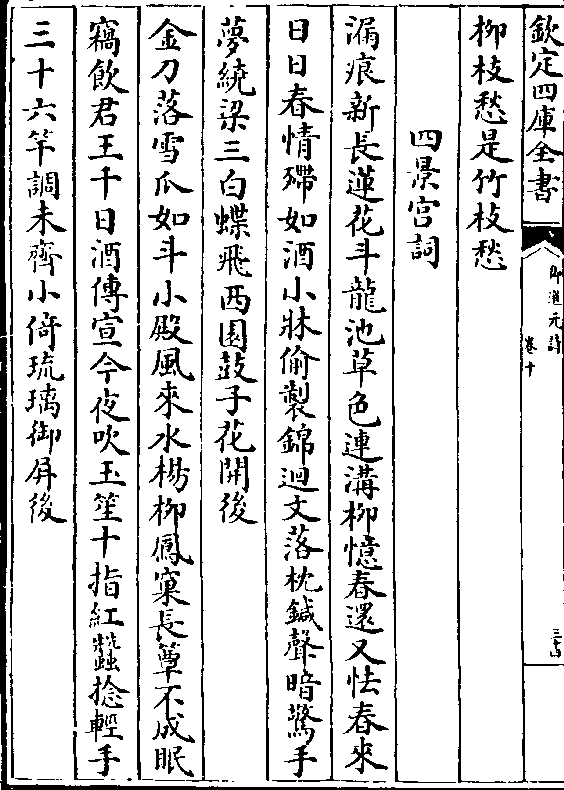 欽定四庫全書
御選元詩
卷十
三十四
柳枝愁是竹枝愁
四景宫詞
漏痕新長蓮花斗龍池草色連溝柳憶春還又怯春來
日日春情殢如酒小牀偷製錦迴文落枕鍼聲暗驚手
夢繞梁三白蝶飛西園鼓子花開後
金刀落雪瓜如斗小殿風來水楊柳鳳窠長簟不成眠
竊飲君王千日酒傳宣今夜吹玉笙十指紅蠶捻輕手
三十六竿調未齊小倚琉璃御屏後